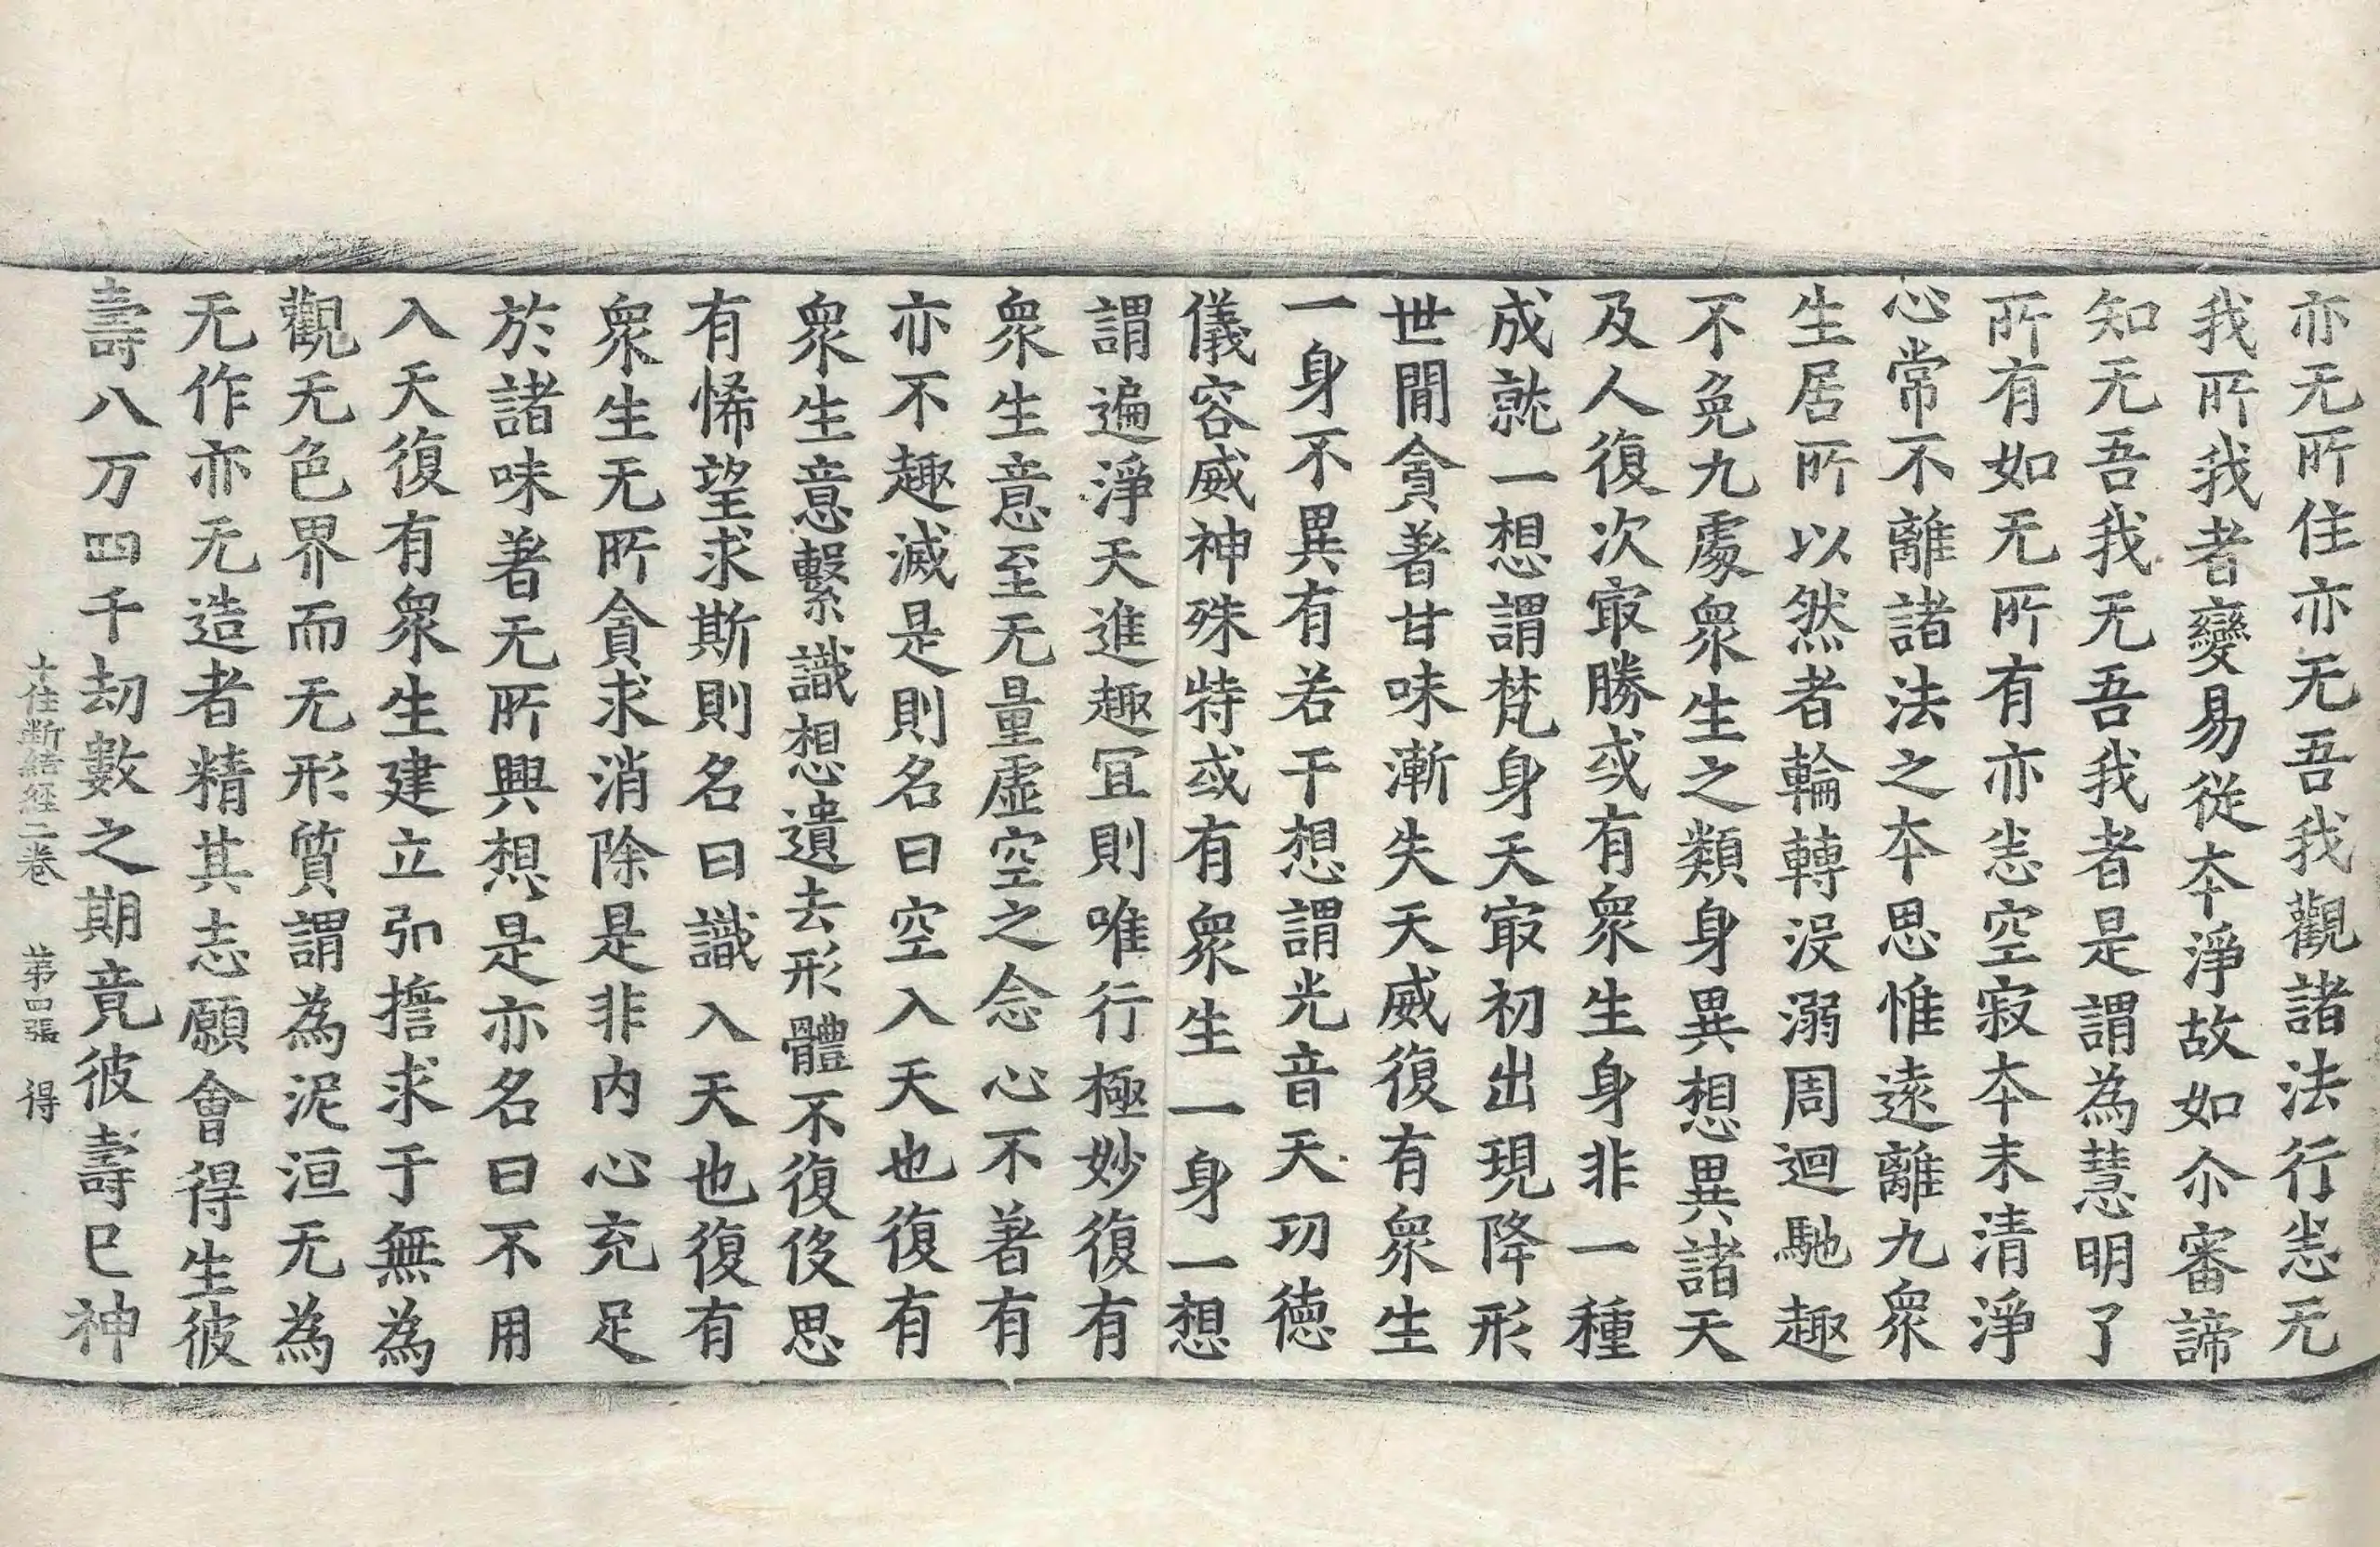 亦无所住亦无吾我觀諸法行恙无
我所我者變易從本淨故如尒審諦
知无吾我无吾我者是謂為慧明了
所有如无所有亦恙空寂本末清淨
心常不離諸法之本思惟遠離九衆
生居所以然者輪轉没溺周迴馳趣
不免九處衆生之類身異想異諸天
及人復次冣勝或有衆生身非一種
成就一想謂梵身天冣初出現降形
世間貪著甘味漸失天威復有衆生
一身不異有若干想謂光音天功德
儀容威神殊特或有衆生一身一想
謂遍淨天進趣冝則唯行極妙復有
衆生意至无量虛空之念心不著有
亦不趣滅是則名曰空入天也復有
衆生意繫識想遺去形體不復伇思
有悕望求斯則名曰識入天也復有
衆生无所貪求消除是非内心充足
於諸味著无所興想是亦名曰不用
入天復有衆生建立弘擔求于無為
觀无色界而无形質謂為泥洹无為
无作亦无造者精其志願會得生彼
壽八万四千劫數之期竟彼壽已神
十住斷結經二卷 第四張 得